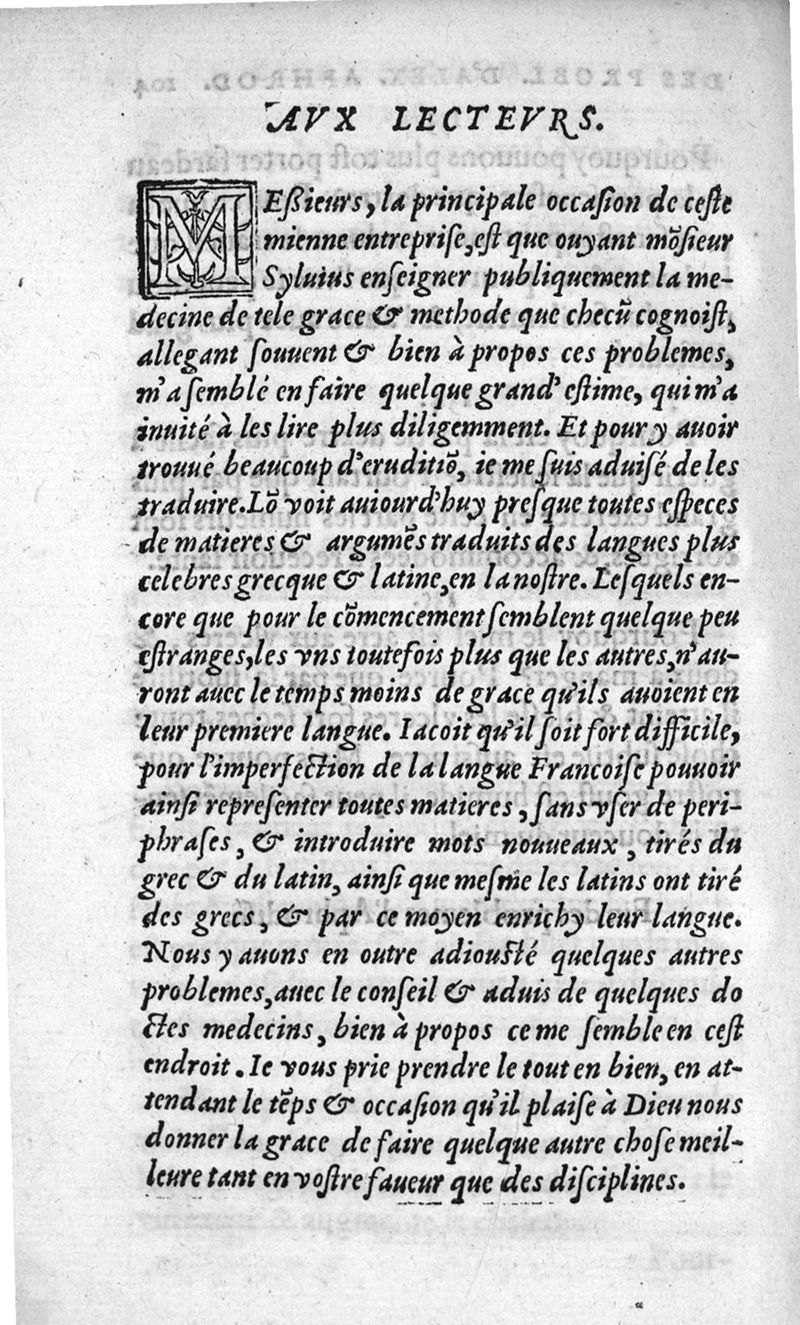 AVX LECTEVRS.
MEßieurs, la principale occaſion de ceſte
mienne entrepriſe, eſt que ouyant mõſieur
Syluius enſeigner publiquement la me-
decine de tele grace & methode que checũ cognoiſt,
allegant ſouuent & bien à propos ces problemes,
m'a ſemblé en faire quelque grand' eſtime, qui m'a
inuité à les lire plus diligemment. Et pour y auoir
trouué beaucoup d'eruditiõ, ie me ſuis aduiſé de les
traduire. Lõ voit auiourd'huy preſque toutes eſpeces
de matieres & argumẽs traduits des langues plus
celebres grecque & latine, en la noſtre. Leſquels en-
core que pour le cõmencement ſemblent quelque peu
eſtranges, les vns toutefois plus que les autres, n'au-
ront auec le temps moins de grace qu'ils auoient en
leur premiere langue. Iacoit qu'il ſoit fort difficile,
pour l'imperfection de la langue Francoiſe pouuoir
ainſi repreſenter toutes matieres, ſans vſer de peri-
phraſes, & introduire mots nouueaux, tirés du
grec & du latin, ainſi que meſme les latins ont tiré
des grecs, & par ce moyen enrichy leur langue.
Nous y auons en outre adiouſté quelques autres
problemes, auec le conſeil & aduis de quelques do
ctes medecins, bien à propos ce me ſemble en ceſt
endroit. Ie vous prie prendre le tout en bien, en at-
tendant le tẽps & occaſion qu'il plaiſe à Dieu nous
donner la grace de faire quelque autre choſe meil-
leure tant en voſtre faueur que des diſciplines.